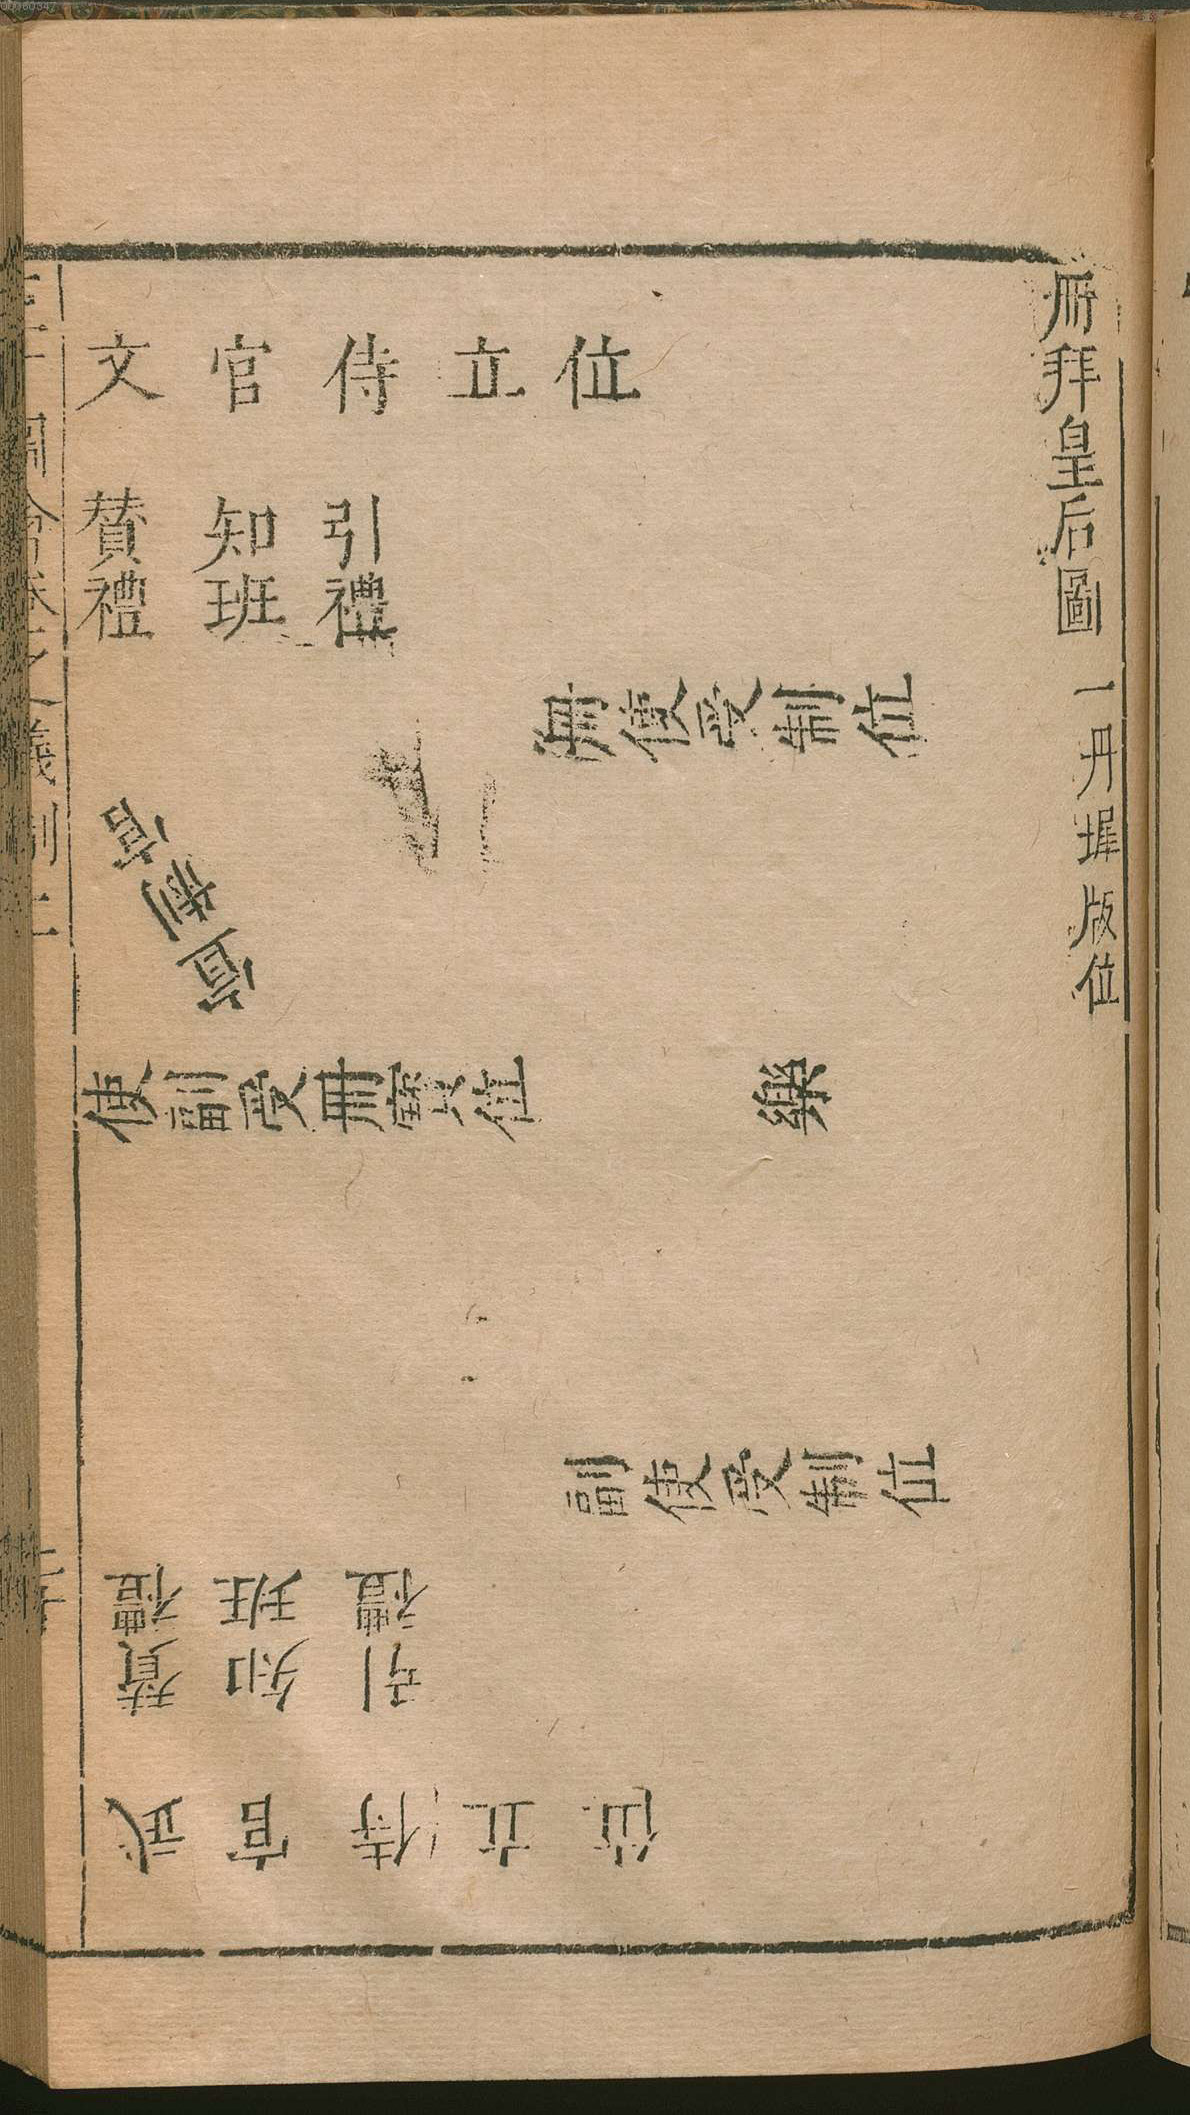 冊拜皇后圖 一丹墀版位
文官侍立位
引禮
知班
贊禮
冊使受制位
宣制官
使副受冊寶位
樂
副使受制位
引禮
知班
贊禮
武官侍立位